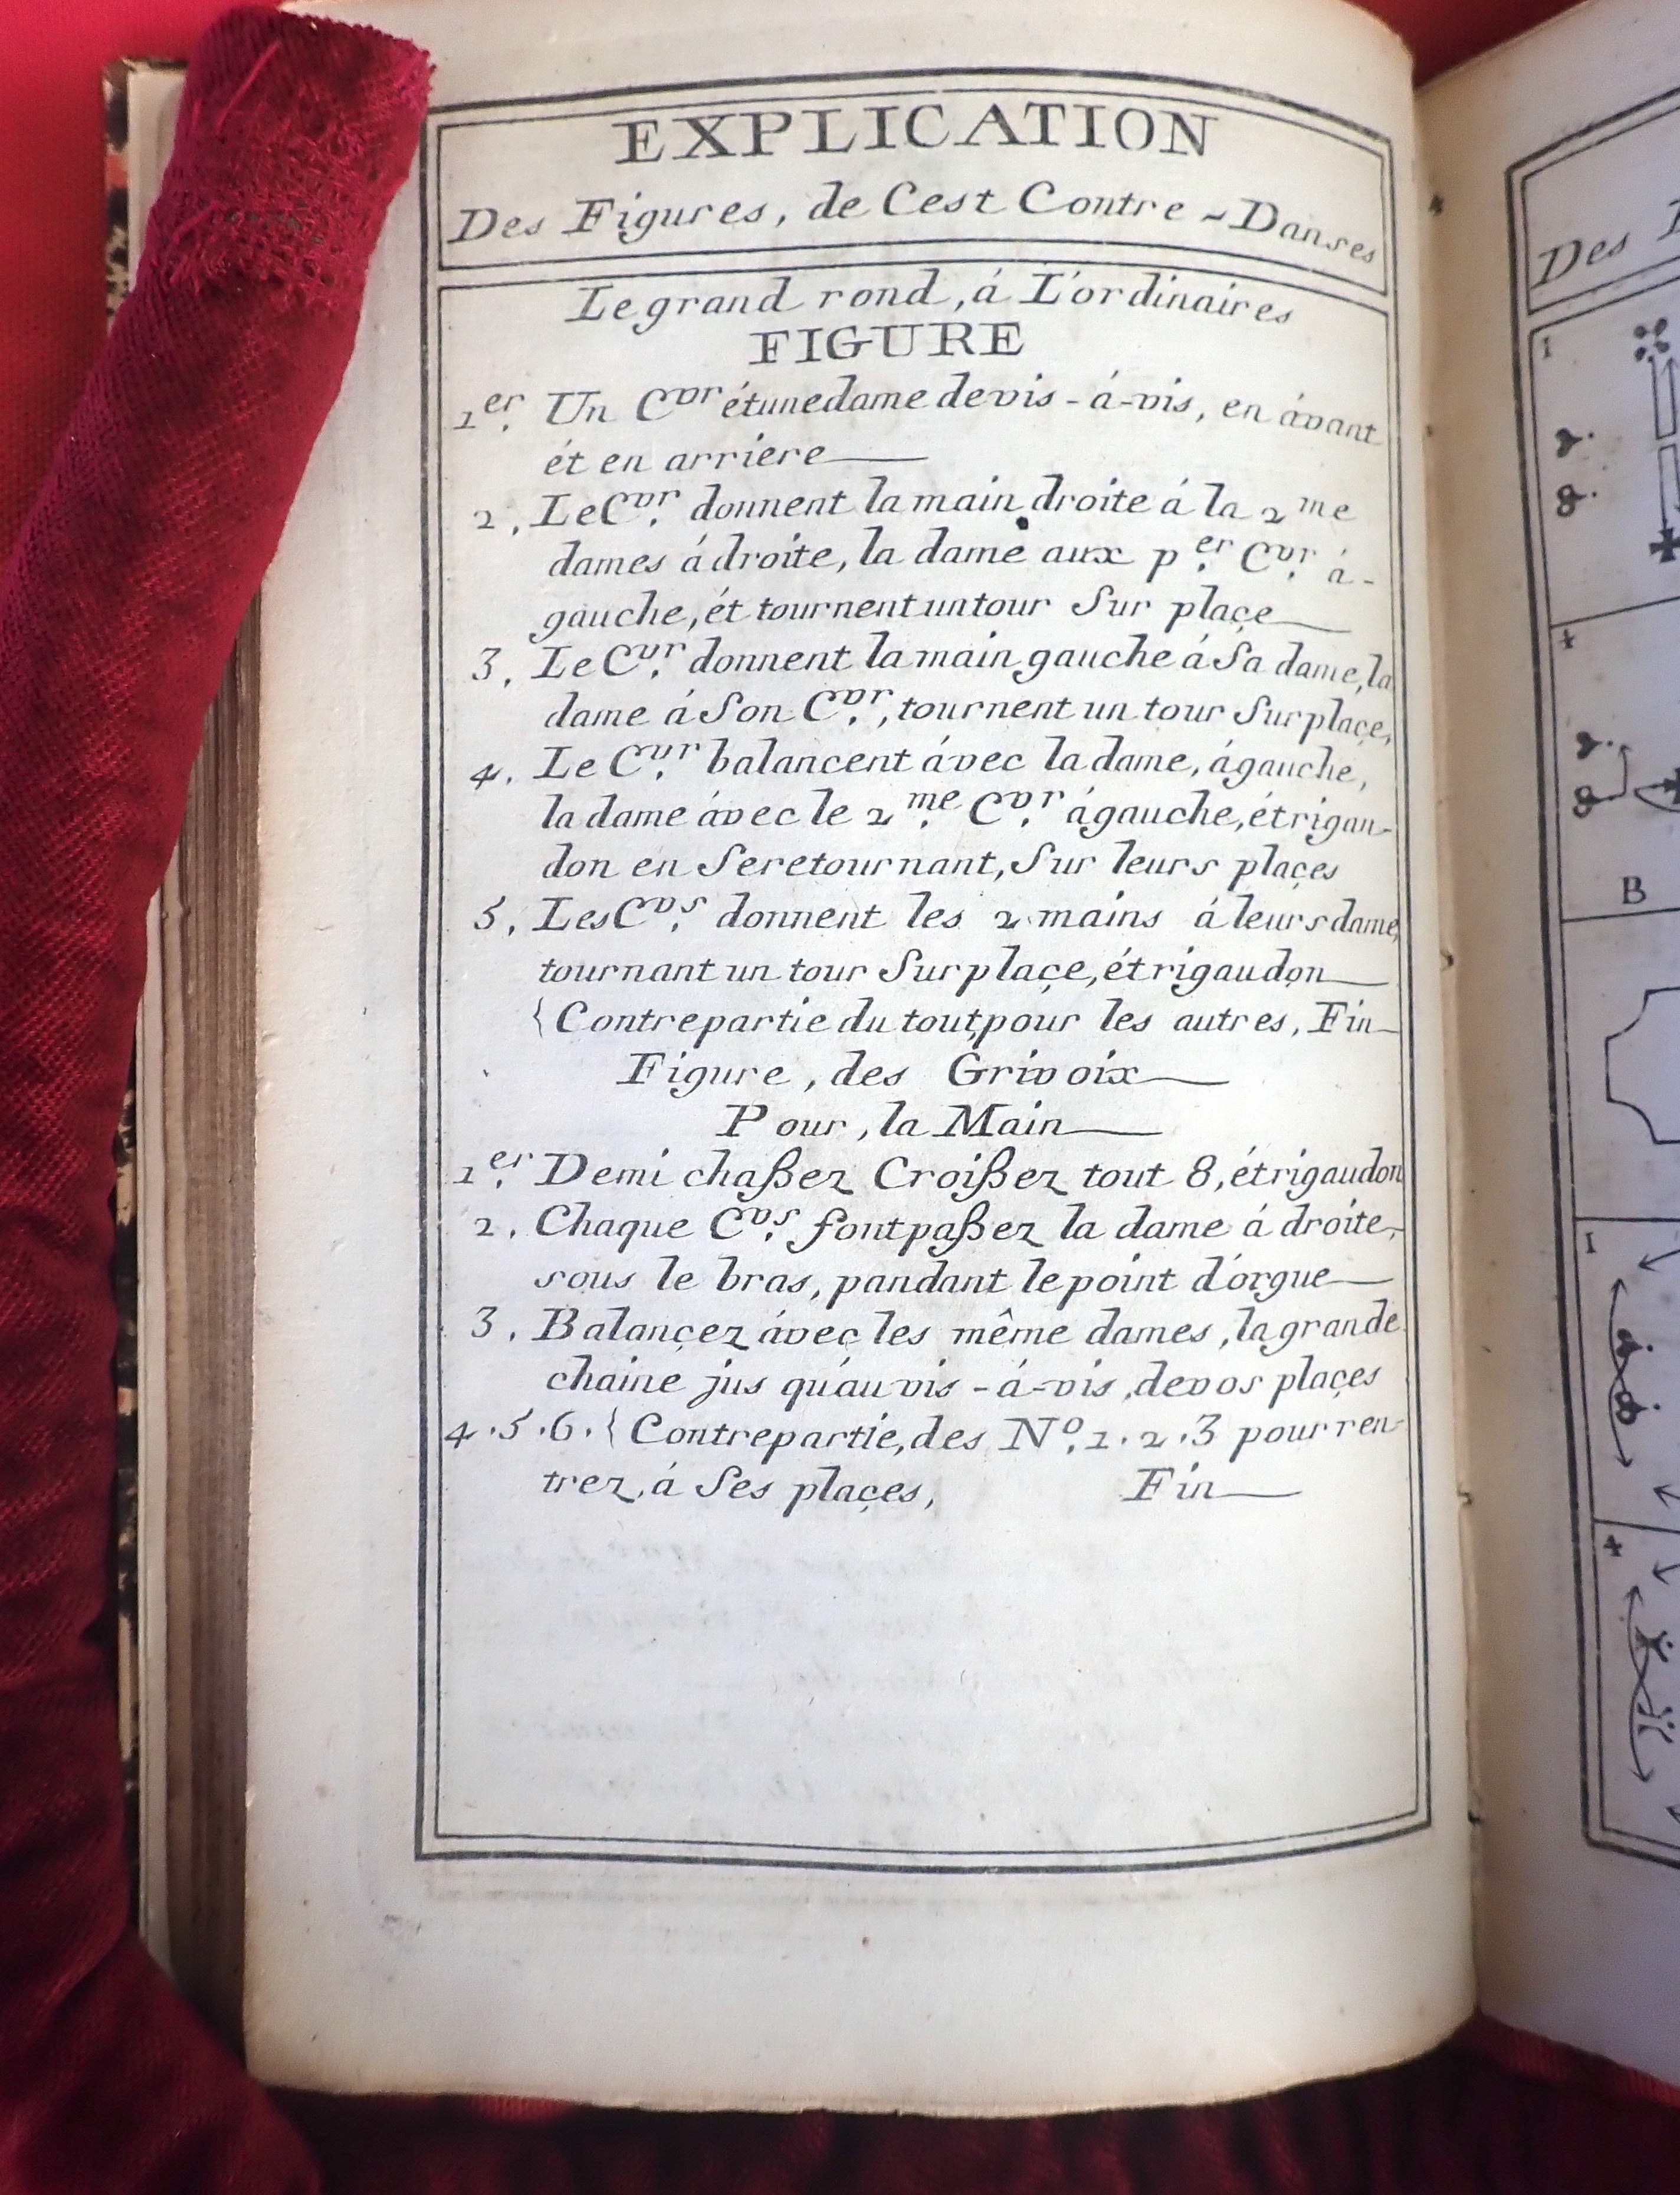 EXPLICATION
Des Figures, de Cest Contre-Danses
Le grand rond, á L'ordinaires
FIGURE
1er. Un Cvr ét une dame de vis-á-vis, en ávant
ét en arriere
2, Le Cvr. donnent la main droite á la 2me
dames á droite, la dame aux per. Cvr. á-
gauche, ét tournent un tour Sur plaçe
3, Le Cvr. donnent la main gauche á Sa dame, la
dame á Son Cvr., tournent un tour Sur plaçe,
4, Le Cvr. balancent ávec la dame, á gauche,
la dame ávec le 2me. Cvr. á gauche, ét rigau-
don en Se retournant, Sur leurs plaçes
5, Les Cvs. donnent les 2 mains á leurs dame,
tournant un tour Sur plaçe, ét rigaudon
{Contrepartie du tout, pour les autres, Fin
Figure, des Grivoix
Pour, la Main
1er. Demi chaßez Croißez tout 8, ét rigaudon
2, Chaque Cvs. font paßez la dame á droite,
sous le bras, pandant le point d'orgue
3, Balançez ávec les même dames, la grande
chaine jus qu'áu vis-á-vis, de vos plaçes
4.5.6.{Contrepartie, des No. 1.2.3 pour ren-
trez, á Ses plaçes, Fin
Des
1
4
B
1
4